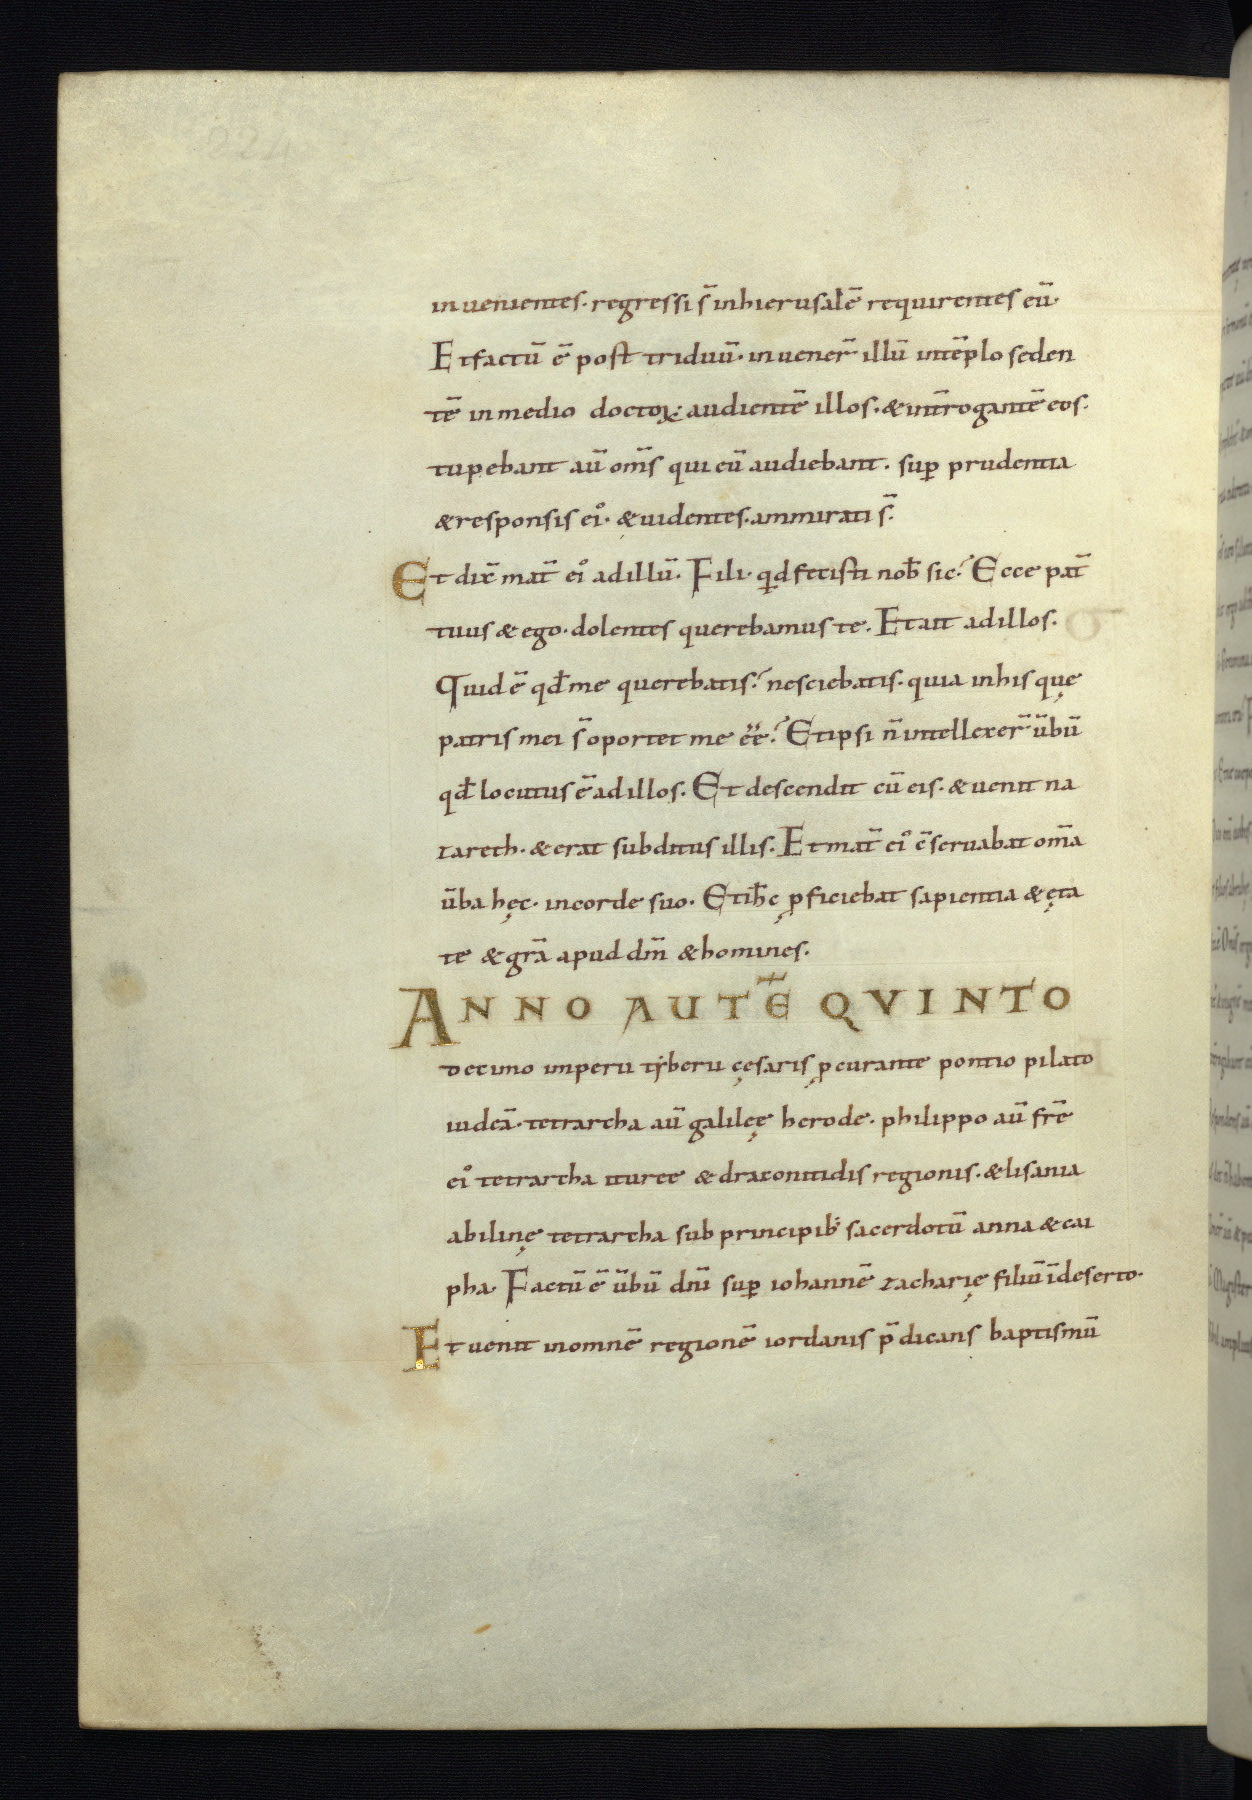 inuenientes. regressi s̄ inhierusalē requirentes eū.
Etfactū ē post triduū. inuener̄ illū intēplo seden
tē inmedio doctoꝝ. audientē illos. &int̄rogantē eos.
tupebant aū om̄s qui eū audiebant. suꝑ prudentia
&responsis eiꝰ. &uidentes. ammirati s̄.
Et dix̄ mat̄ eiꝰ adillū. Fili. qͥd fecisti nob̄ sic? Ecce pat̄
tuus & ego. dolentes querebamus te. Etait adillos.
Quid ē qd̄ me querebatis? nesciebatis. quia inhis quę
patris mei s̄ oportet me ēē? Etipsi n̄ intellexer̄ ūbū
qd̄ locutus ē adillos. Et descendit cū eis. &uenit na
zareth. &erat subditus illis. Et mat̄ eiꝰ c̄seruabat om̄a
ūba hęc. incorde suo. Etih̄c ꝓficiebat sapientia &ęta
te &gr̄a apud dm̄ &homines.
ANNO AUTĒ QVINTO
decimo imperii tẏberii cęsaris ꝓcurante pontio pilato
iudeā. tetrarcha aū galileę herode. philippo aū frē
eiꝰ tetrarchaituree &draconitidis regionis. &lisania
abilinę tetrarcha sub principib; sacerdotū anna &cai
pha. Factū ē ūbū dn̄i suꝑ iohannē zacharię filiū īdeserto.
Et uenit inomnē regionē iordanis p̄dicans baptismū